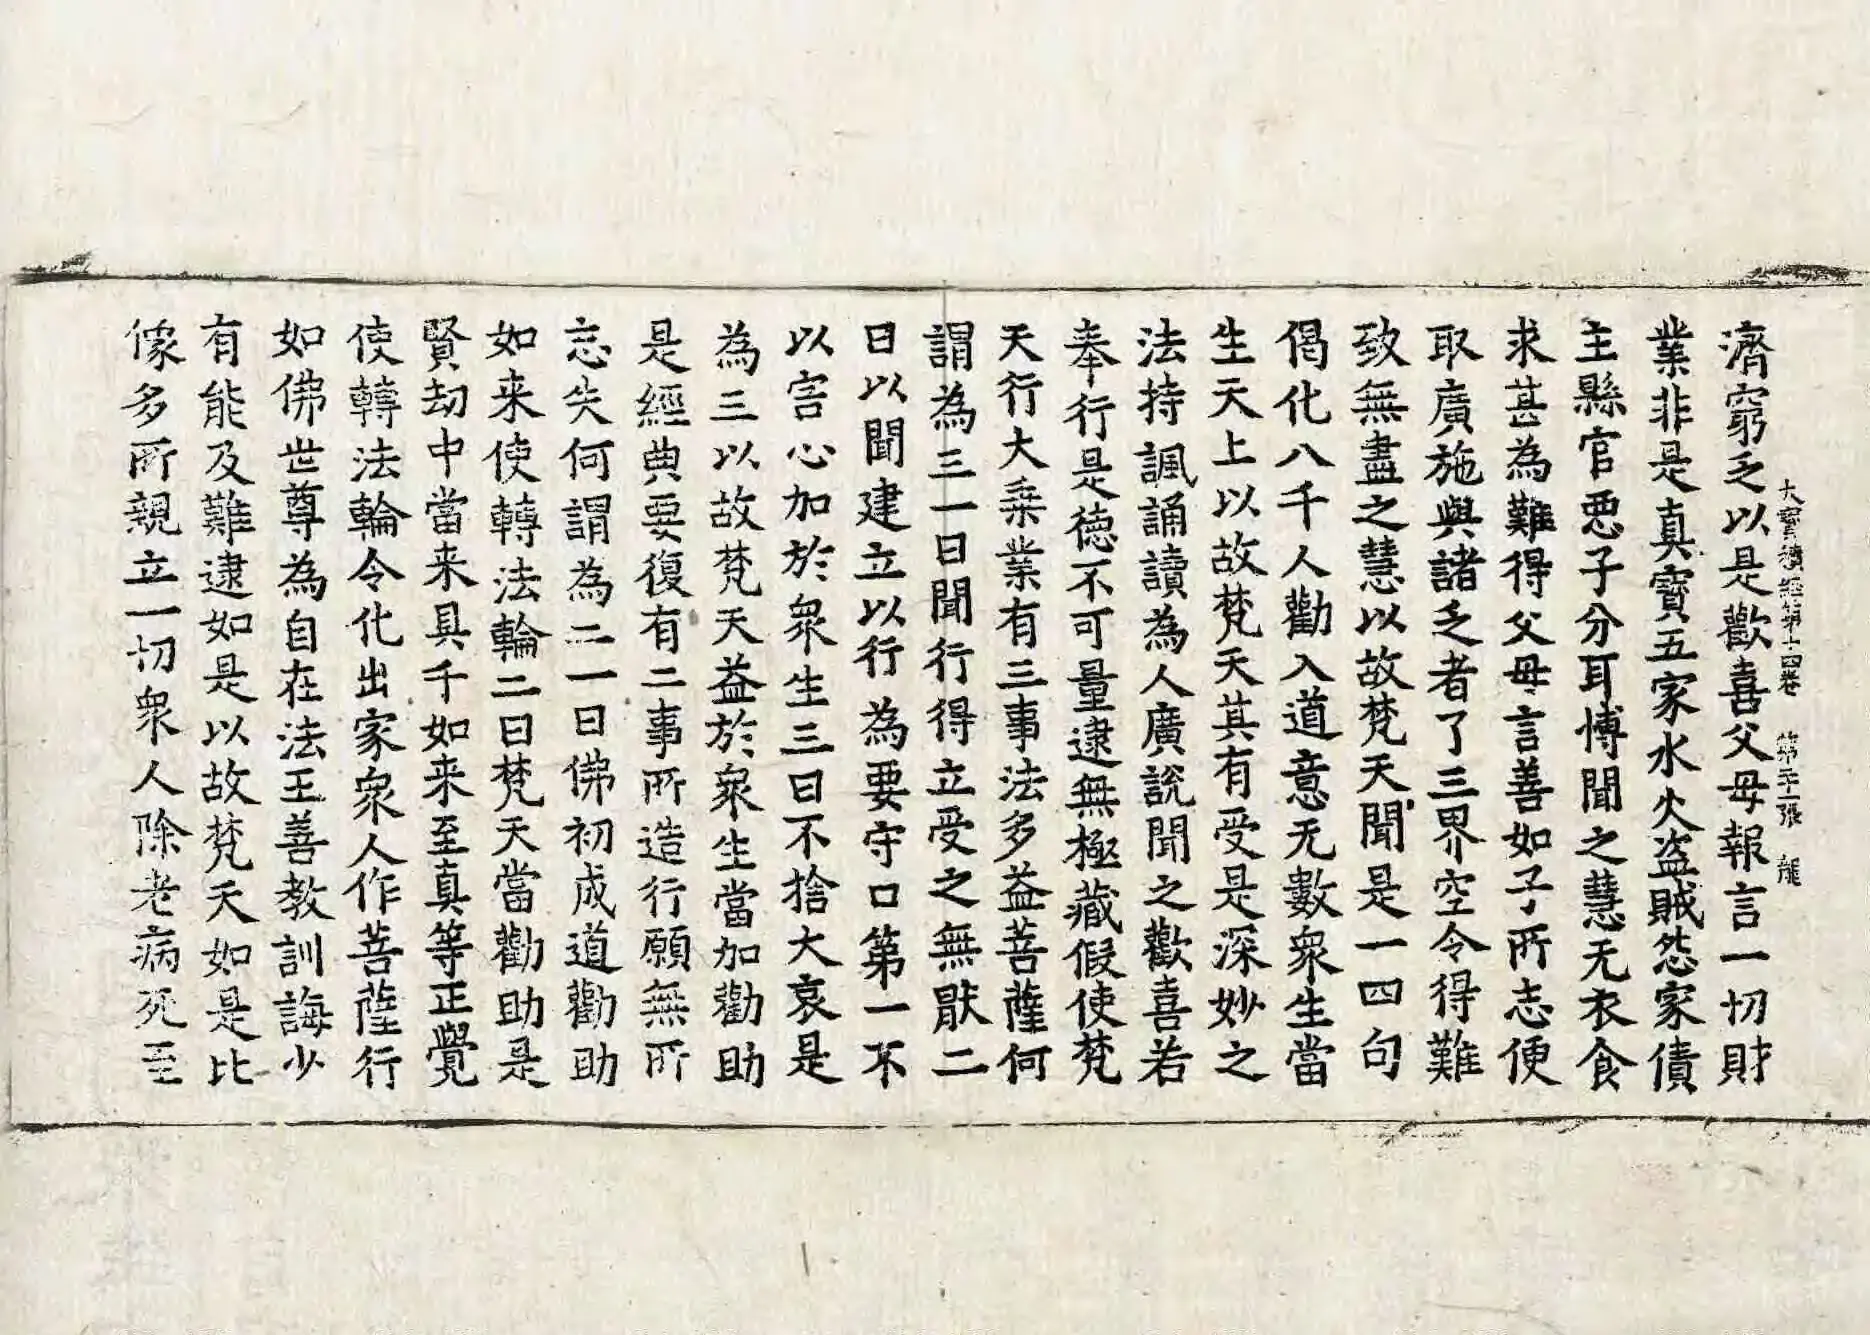 大寶積經第十四卷 第二十一張 龍
濟窮乏以是歡喜父母報言一切財
業非是真寶五家水火盗賊怨家債
主縣官惡子分耳博聞之慧无衣食
求甚為難得父母言善如子所志便
取廣施與諸乏者了三界空令得難
致無盡之慧以故梵天聞是一四句
偈化八千人勸入道意无數眾生當
生天上以故梵天其有受是深妙之
法持諷誦讀為人廣說聞之歡喜若
奉行是德不可量逮無極藏假使梵
天行大乗業有三事法多益菩薩何
謂為三一曰聞行得立受之無猒二
曰以聞建立以行為要守口第一不
以害心加於眾生三曰不捨大哀是
為三以故梵天益於眾生當加勸助
是經典要復有二事所造行願無所
忘失何謂為二一曰佛初成道勸助
如来使轉法輪二曰梵天當勸助是
賢劫中當来具千如来至真等正覺
使轉法輪令化出家眾人作菩薩行
如佛世尊為自在法王善教訓誨少
有能及難逮如是以故梵天如是比
像多所親立一切眾人除老病死至